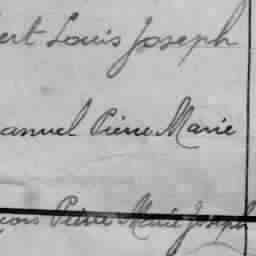 ert Louis Joseph
anuel Pierre Marie
çois Pierre Marie Joseph